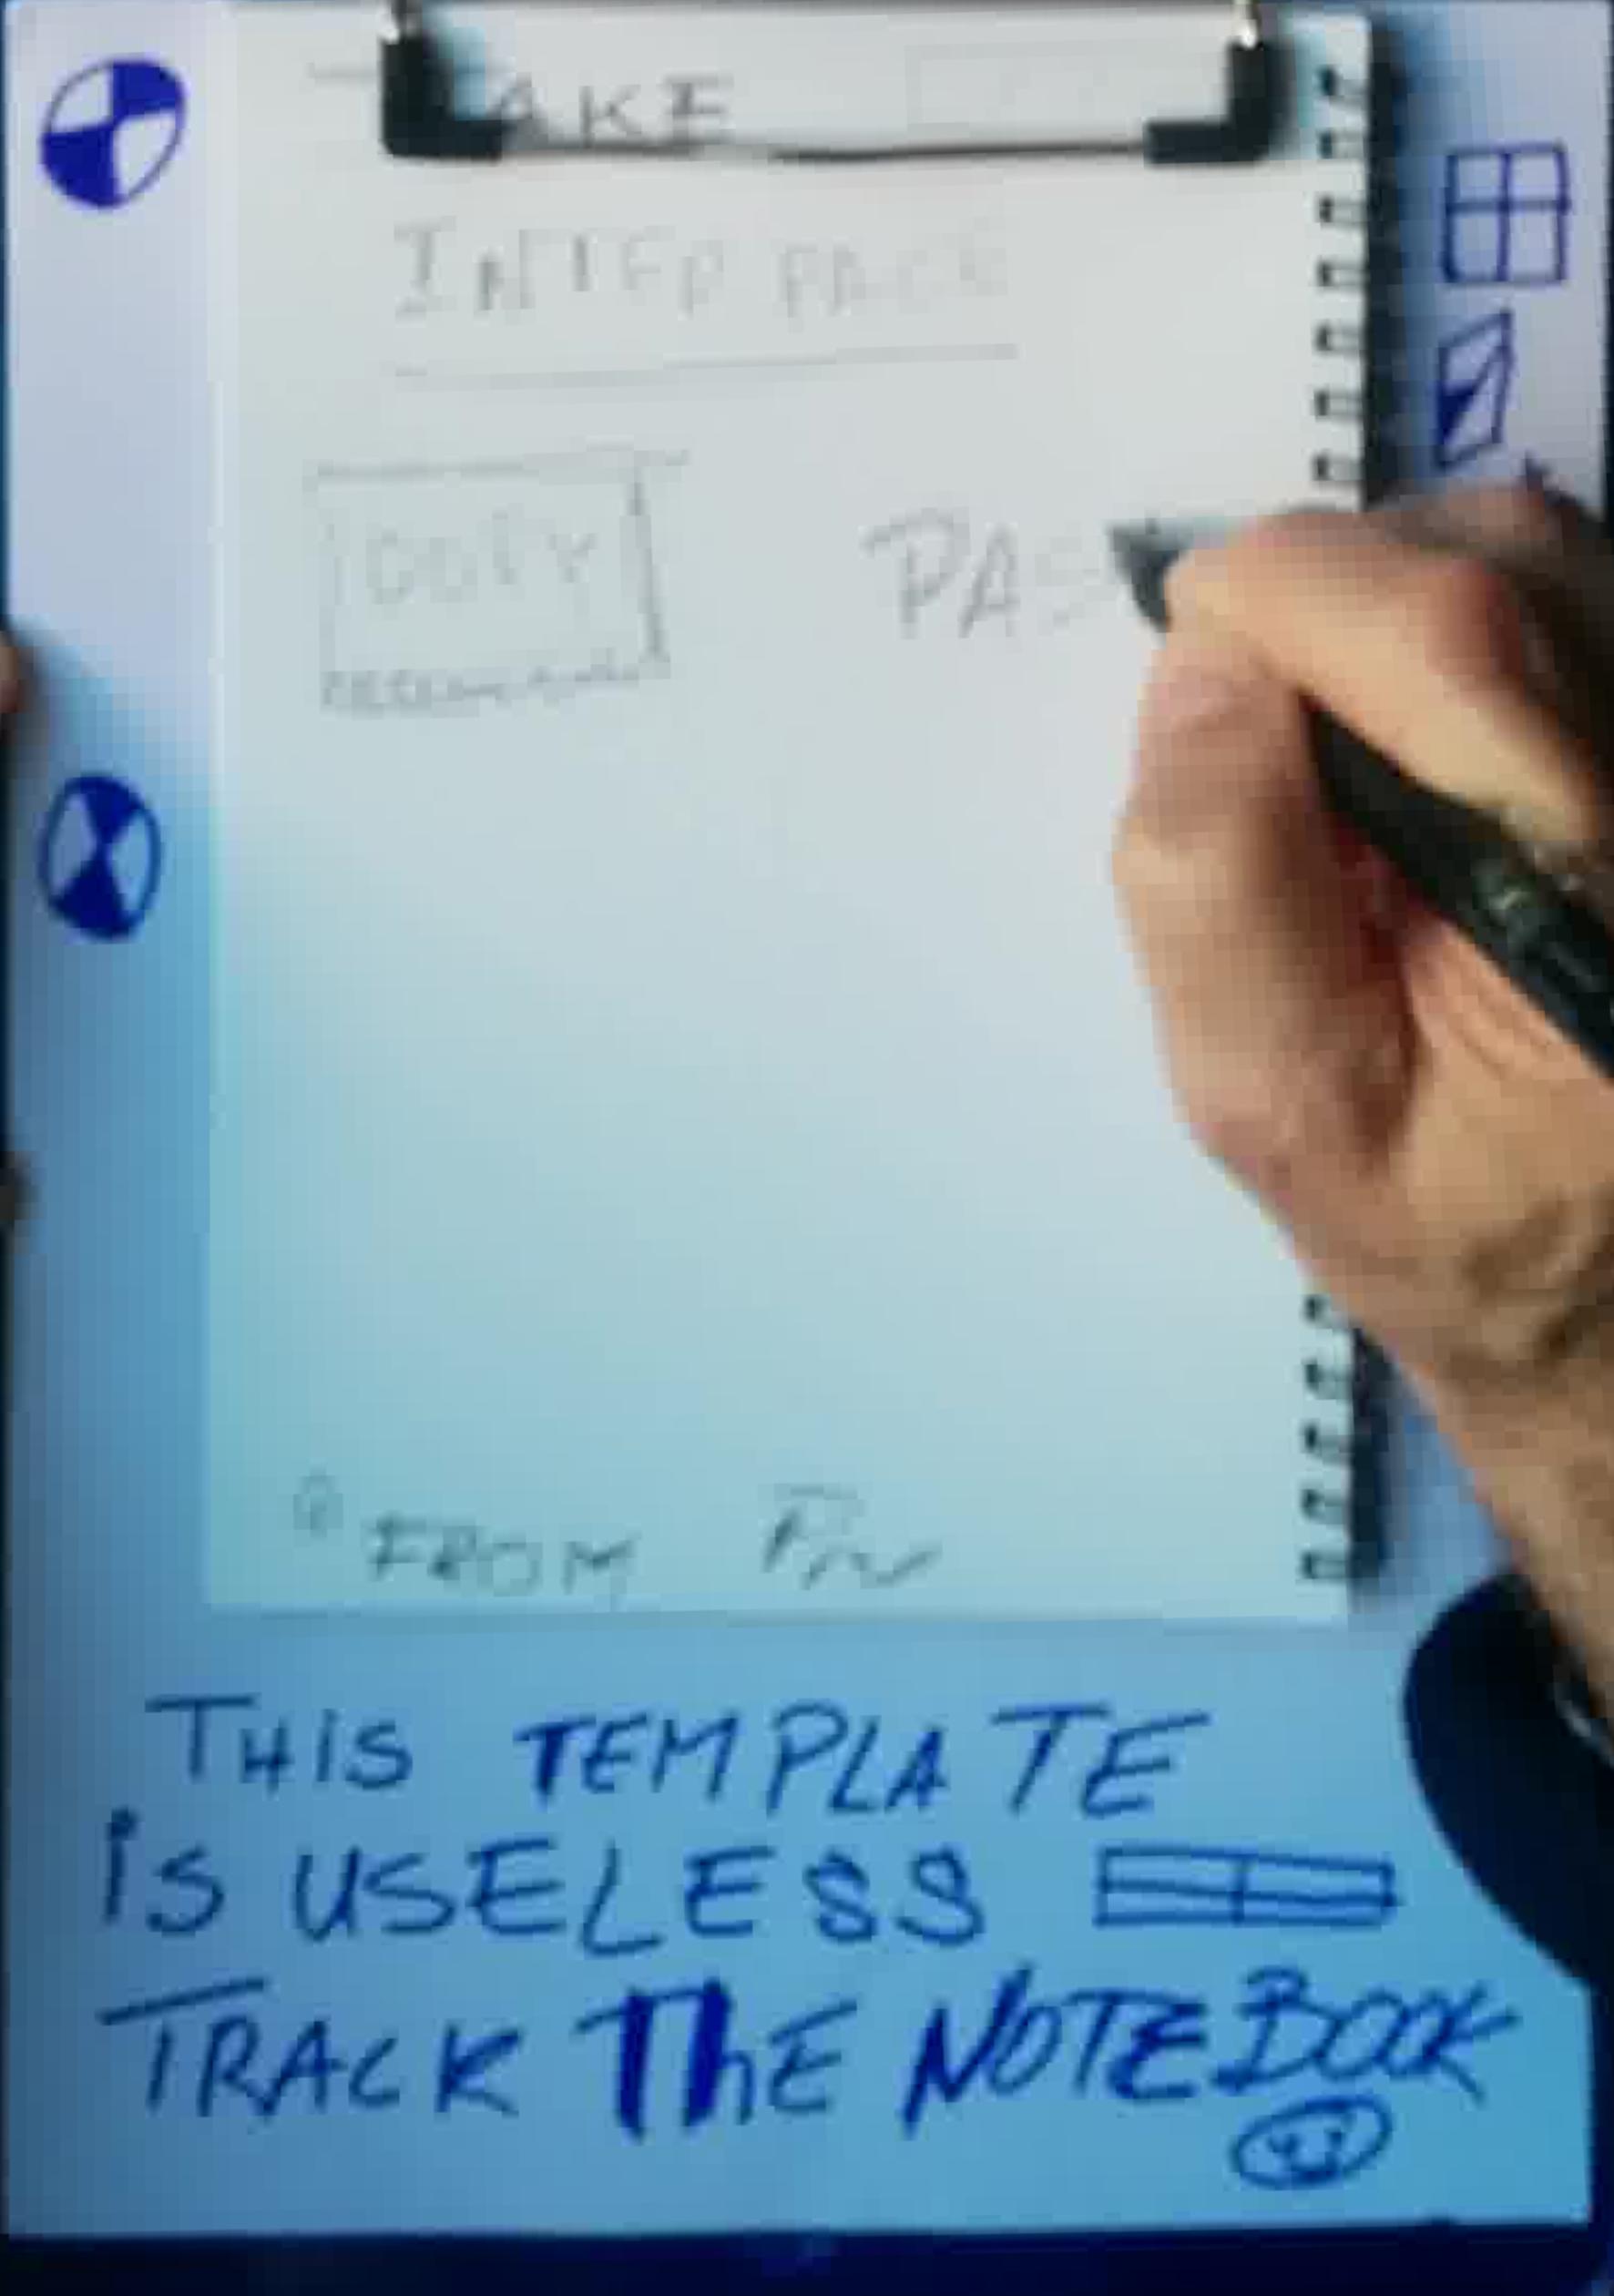 AKE
INTERFACE
COPY PAS
FROM
THiS TEMPLATE
iS USELESS
TRACK ThE NOTEBOOK